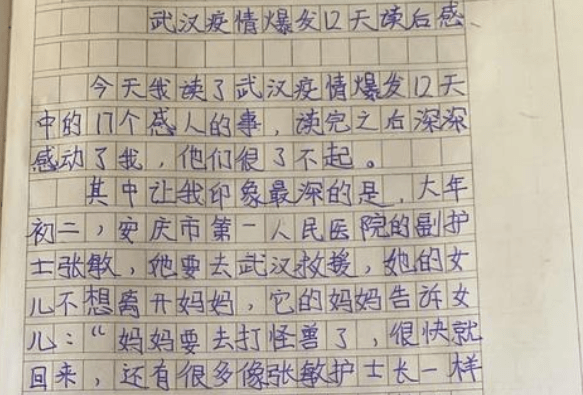 武汉疫情爆发12天读后感
今天我读了武汉疫情爆发12天
中的17个感人的事，读完之后深深
感动了我，他们很了不起。
其中让我印象最深的是，大年
初二，安庆市第一人民医院的副护
士张敏，她要去武汉救援，她的女
儿不想离开妈妈，它的妈妈告诉女
儿：“妈妈要去打怪兽了，很快就
回来，还有很多像张敏护士长一样